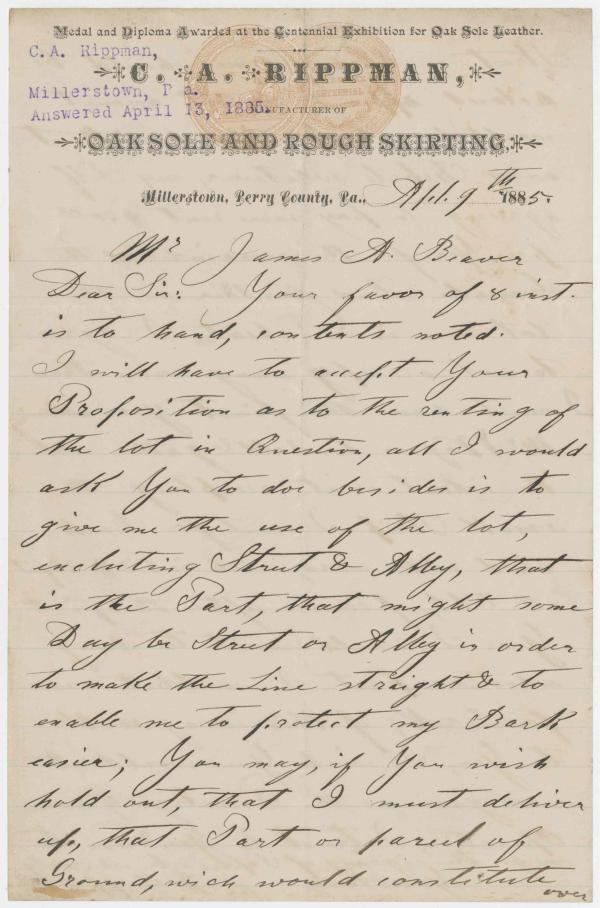 Medal and Diploma Awarded at the Centennial Exhibition for Oak Sole Leather.
C.A. Rippman,
C. A. RIPPMAN,
Millerstown, P a.
Answered April 13, 1885.
MANUFACTURER OF
OAK SOLE AND ROUGH SKIRTING,
Millerstown, Perry County, Pa., Apl. 9th 1885.
Mr James A. Beaver
Dear Sir: Your favor of 8 inst.
is to hand, contents noted.
I will have to accept Your
Proposition as to the renting of
the lot in Question, all I would
ask You to doe besides is to
give me the use of the lot,
encluting Street & Alley, that
is the Part, that might some
Day be Street or Alley in order
to make the Line straight & to
enable me to protect my Bark
easier; You may, if You wish
hold out, that I must deliver
up, that Part or parcel of
Ground, wich would constitute
over